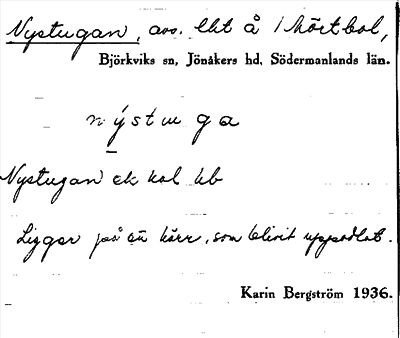 Nystugan, avs. lht å 1 Mörtbol,
Björkviks sn, Jönåkers hd, Södermanlands län.
nýstuga
Nystugan ek kbl
Ligger på en kärr, som blivit uppodlat.
Karin Bergström 1936.